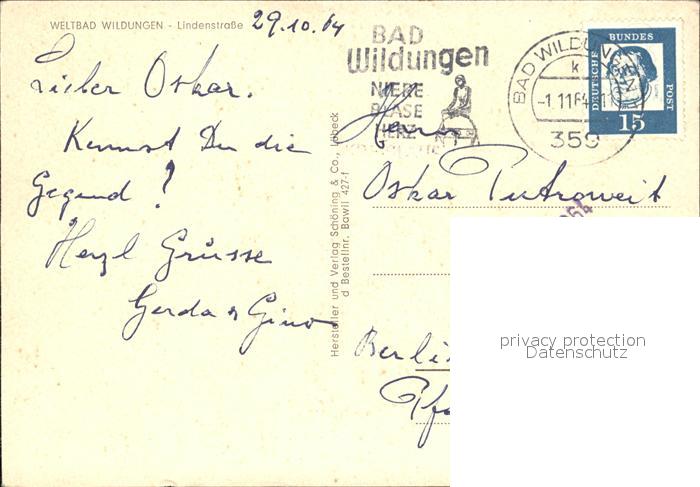 WELTBAD WILDUNGEN - Lindenstraße
29.10.64
Lieber Oskar.
Kennst Du die
Gegend?
Herzl Grüsse
Gerda & Gino
Hersteller und Verlag Schöning & Co., Lübeck
d Bestellnr. Bawil 427-f
BAD
Wildungen
NIERE
BLASE
HERZ
BAD WILDUNGEN
k
-1.11.64
359
DEUTSCHE
BUNDES
POST
15
Herrn
Oskar
Berli
privacy protection
Datenschutz